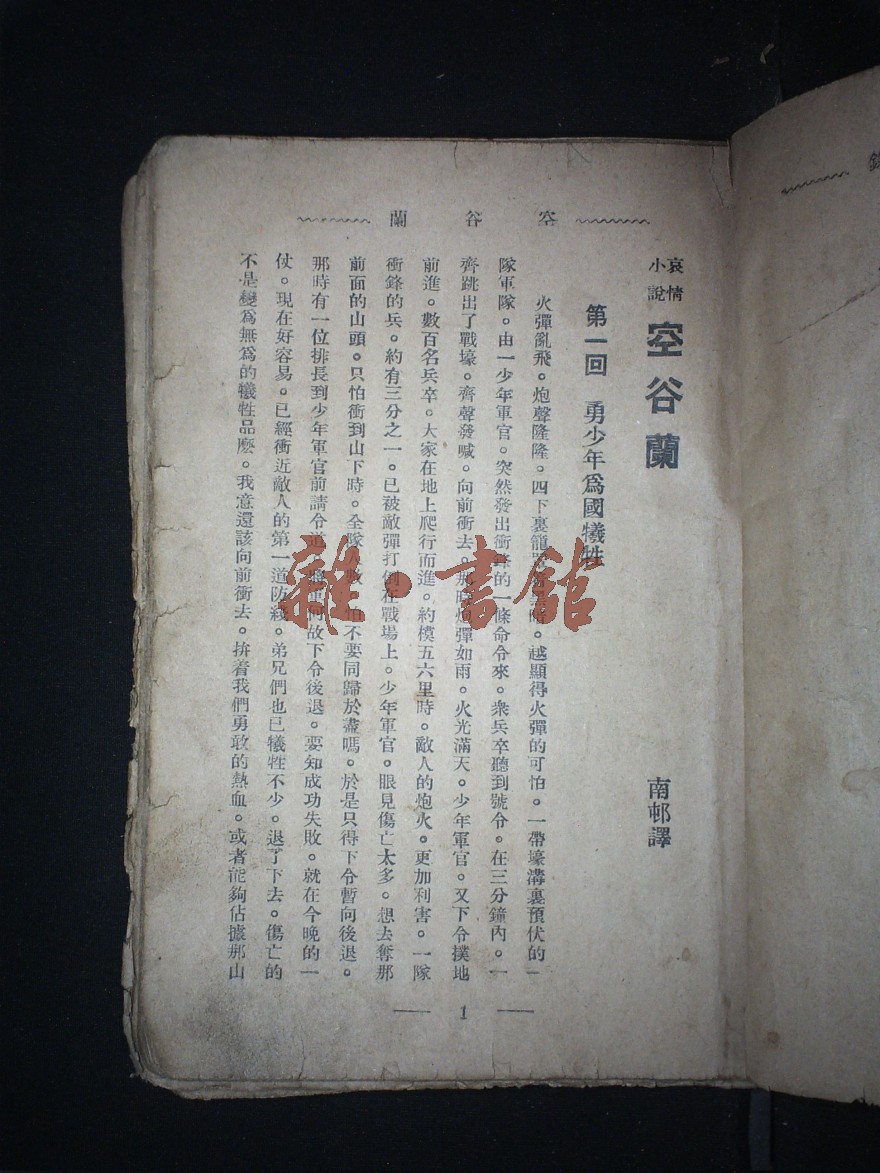 空谷蘭
哀情
小說
空谷蘭
南邨譯
第一回 勇少年爲國犧牲
火彈亂飛。炮聲隆隆。四下裏籠罩 越顯得火彈的可怕。一帶壕溝裏預伏的一
隊軍隊。由一少年軍官。突然發出衝鋒的一條命令來。衆兵卒聽到號令。在三分鐘內。一
齊跳出了戰壕。齊聲發喊。向前衝去。那時炮彈如雨。火光滿天。少年軍官。又下令撲地
前進。數百名兵卒。大家在地上爬行而進。約模五六里時。敵人的炮火。更加利害。一隊
衝鋒的兵。約有三分之一。已被敵彈打倒在戰場上。少年軍官。眼見傷亡太多。想去奪那
前面的山頭。只怕衝到山下時。全隊人數 不要同歸於盡嗎。於是只得下令暫向後退。
那時有一位排長到少年軍官前請令道 何故下令後退。要知成功失敗。就在今晚的一
仗。現在好容易。已經衝近敵人的第一道防綫。弟兄們也已犧牲不少。退了下去。傷亡的
不是變爲無爲的犧牲品麽。我意還該向前衝去。拚着我們勇敢的熱血。或者能夠佔據那山
1
雜·書館